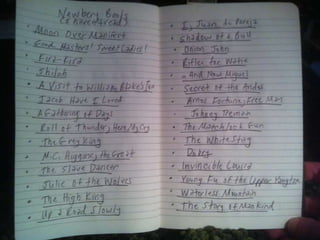 Newbery Books
I have read
Moon Over Manifest
Good Masters! Sweet Ladies!
Kira-Kira
Shiloh
A Visit to William Blake's Inn
Jacob Have I Loved
A Gathering of Days
Roll of Thunder, Hear My Cry
The Grey King
M.C. Higgins, the Great
The Slave Dancer
Julie of the Wolves
The High King
Up a Road Slowly
I, Juan de Pareja
Shadow of a Bull
Onion John
Rifles for Watie
..And Now Miguel
Secret of the Andes
Amos Fortune, Free Man
Johnny Tremain
The Matchlock Gun
The White Stag
Dobry
Invincible Louisa
Young Fu of the Upper Yangtze
Waterless Mountain
The Story of Mankind